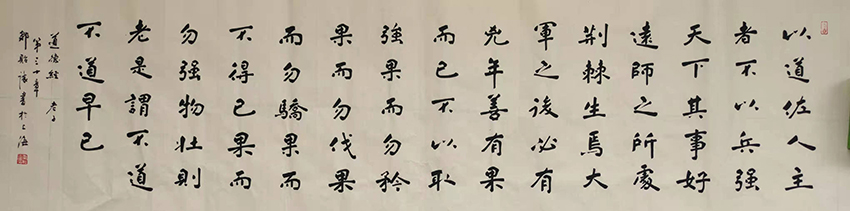 以道佐人主
者不以兵强
天下其事好
遠師之所處
荆棘生焉大
軍之後必有
兇年善有果
而已不以取
強果而勿矜
果而勿伐果
而勿驕果而
不得已果而
勿強物壯則
老是謂不道
不道早已
道德經 老子
第三十章
書於上海